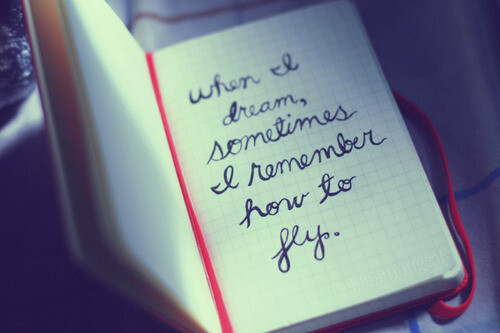 when I
dream,
sometimes
I remember
how to
fly.